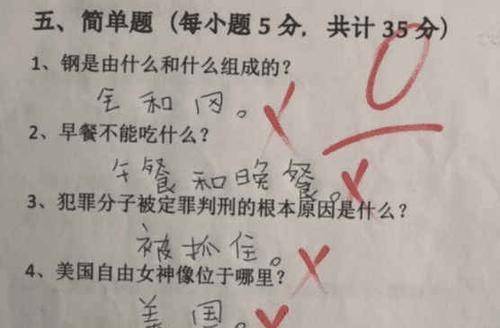 五、简单题（每小题5分，共计35分）
0
1、钢是由什么和什么组成的？
全和冈。
2、早餐不能吃什么？
午餐和晚餐。
3、犯罪分子被定罪判刑的根本原因是什么？
被抓住。
4、美国自由女神像位于哪里？
美国。